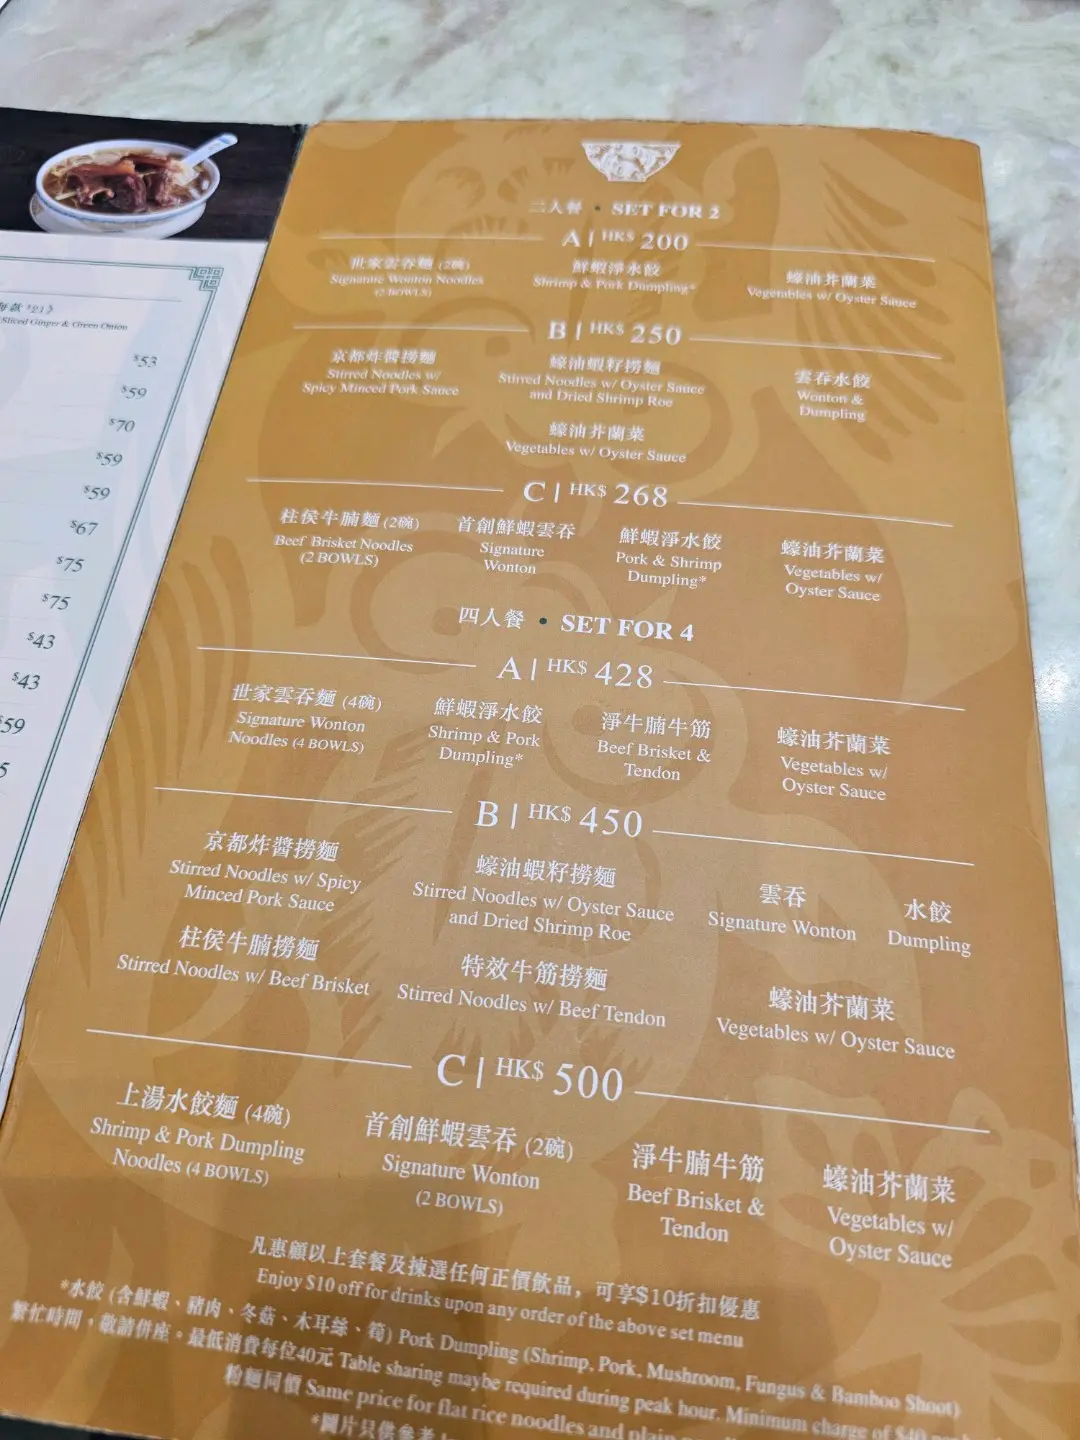 每款 $21》
Sliced Ginger & Green Onion
$53
$59
$70
$59
$59
$67
$75
$75
$43
$43
$59
5
二人餐 • SET FOR 2
A | HK$ 200
世家雲吞麵 (2碗)
Signature Wonton Noodles
(2 BOWLS)
鮮蝦淨水餃
Shrimp & Pork Dumpling*
蠔油芥蘭菜
Vegetables w/ Oyster Sauce
B | HK$ 250
京都炸醬撈麵
Stirred Noodles w/
Spicy Minced Pork Sauce
蠔油蝦籽撈麵
Stirred Noodles w/ Oyster Sauce
and Dried Shrimp Roe
雲吞水餃
Wonton &
Dumpling
蠔油芥蘭菜
Vegetables w/ Oyster Sauce
C | HK$ 268
柱侯牛腩麵 (2碗)
Beef Brisket Noodles
(2 BOWLS)
首創鮮蝦雲吞
Signature
Wonton
鮮蝦淨水餃
Pork & Shrimp
Dumpling*
蠔油芥蘭菜
Vegetables w/
Oyster Sauce
四人餐 • SET FOR 4
A | HK$ 428
世家雲吞麵 (4碗)
Signature Wonton
Noodles (4 BOWLS)
鮮蝦淨水餃
Shrimp & Pork
Dumpling*
淨牛腩牛筋
Beef Brisket &
Tendon
蠔油芥蘭菜
Vegetables w/
Oyster Sauce
B | HK$ 450
京都炸醬撈麵
Stirred Noodles w/ Spicy
Minced Pork Sauce
蠔油蝦籽撈麵
Stirred Noodles w/ Oyster Sauce
and Dried Shrimp Roe
雲吞
Signature Wonton
水餃
Dumpling
柱侯牛腩撈麵
Stirred Noodles w/ Beef Brisket
特效牛筋撈麵
Stirred Noodles w/ Beef Tendon
蠔油芥蘭菜
Vegetables w/ Oyster Sauce
C | HK$ 500
上湯水餃麵 (4碗)
Shrimp & Pork Dumpling
Noodles (4 BOWLS)
首創鮮蝦雲吞 (2碗)
Signature Wonton
(2 BOWLS)
淨牛腩牛筋
Beef Brisket &
Tendon
蠔油芥蘭菜
Vegetables w/
Oyster Sauce
凡惠顧以上套餐及揀選任何正價飲品，可享$10折扣優惠
Enjoy $10 off for drinks upon any order of the above set menu
*水餃 (含鮮蝦、豬肉、冬菇、木耳絲、筍) Pork Dumpling (Shrimp, Pork, Mushroom, Fungus & Bamboo Shoot)
繁忙時間，敬請併座。最低消費每位40元 Table sharing maybe required during peak hour. Minimum charge of $40 per
粉麵同價 Same price for flat rice noodles and plain
*圖片只供參考